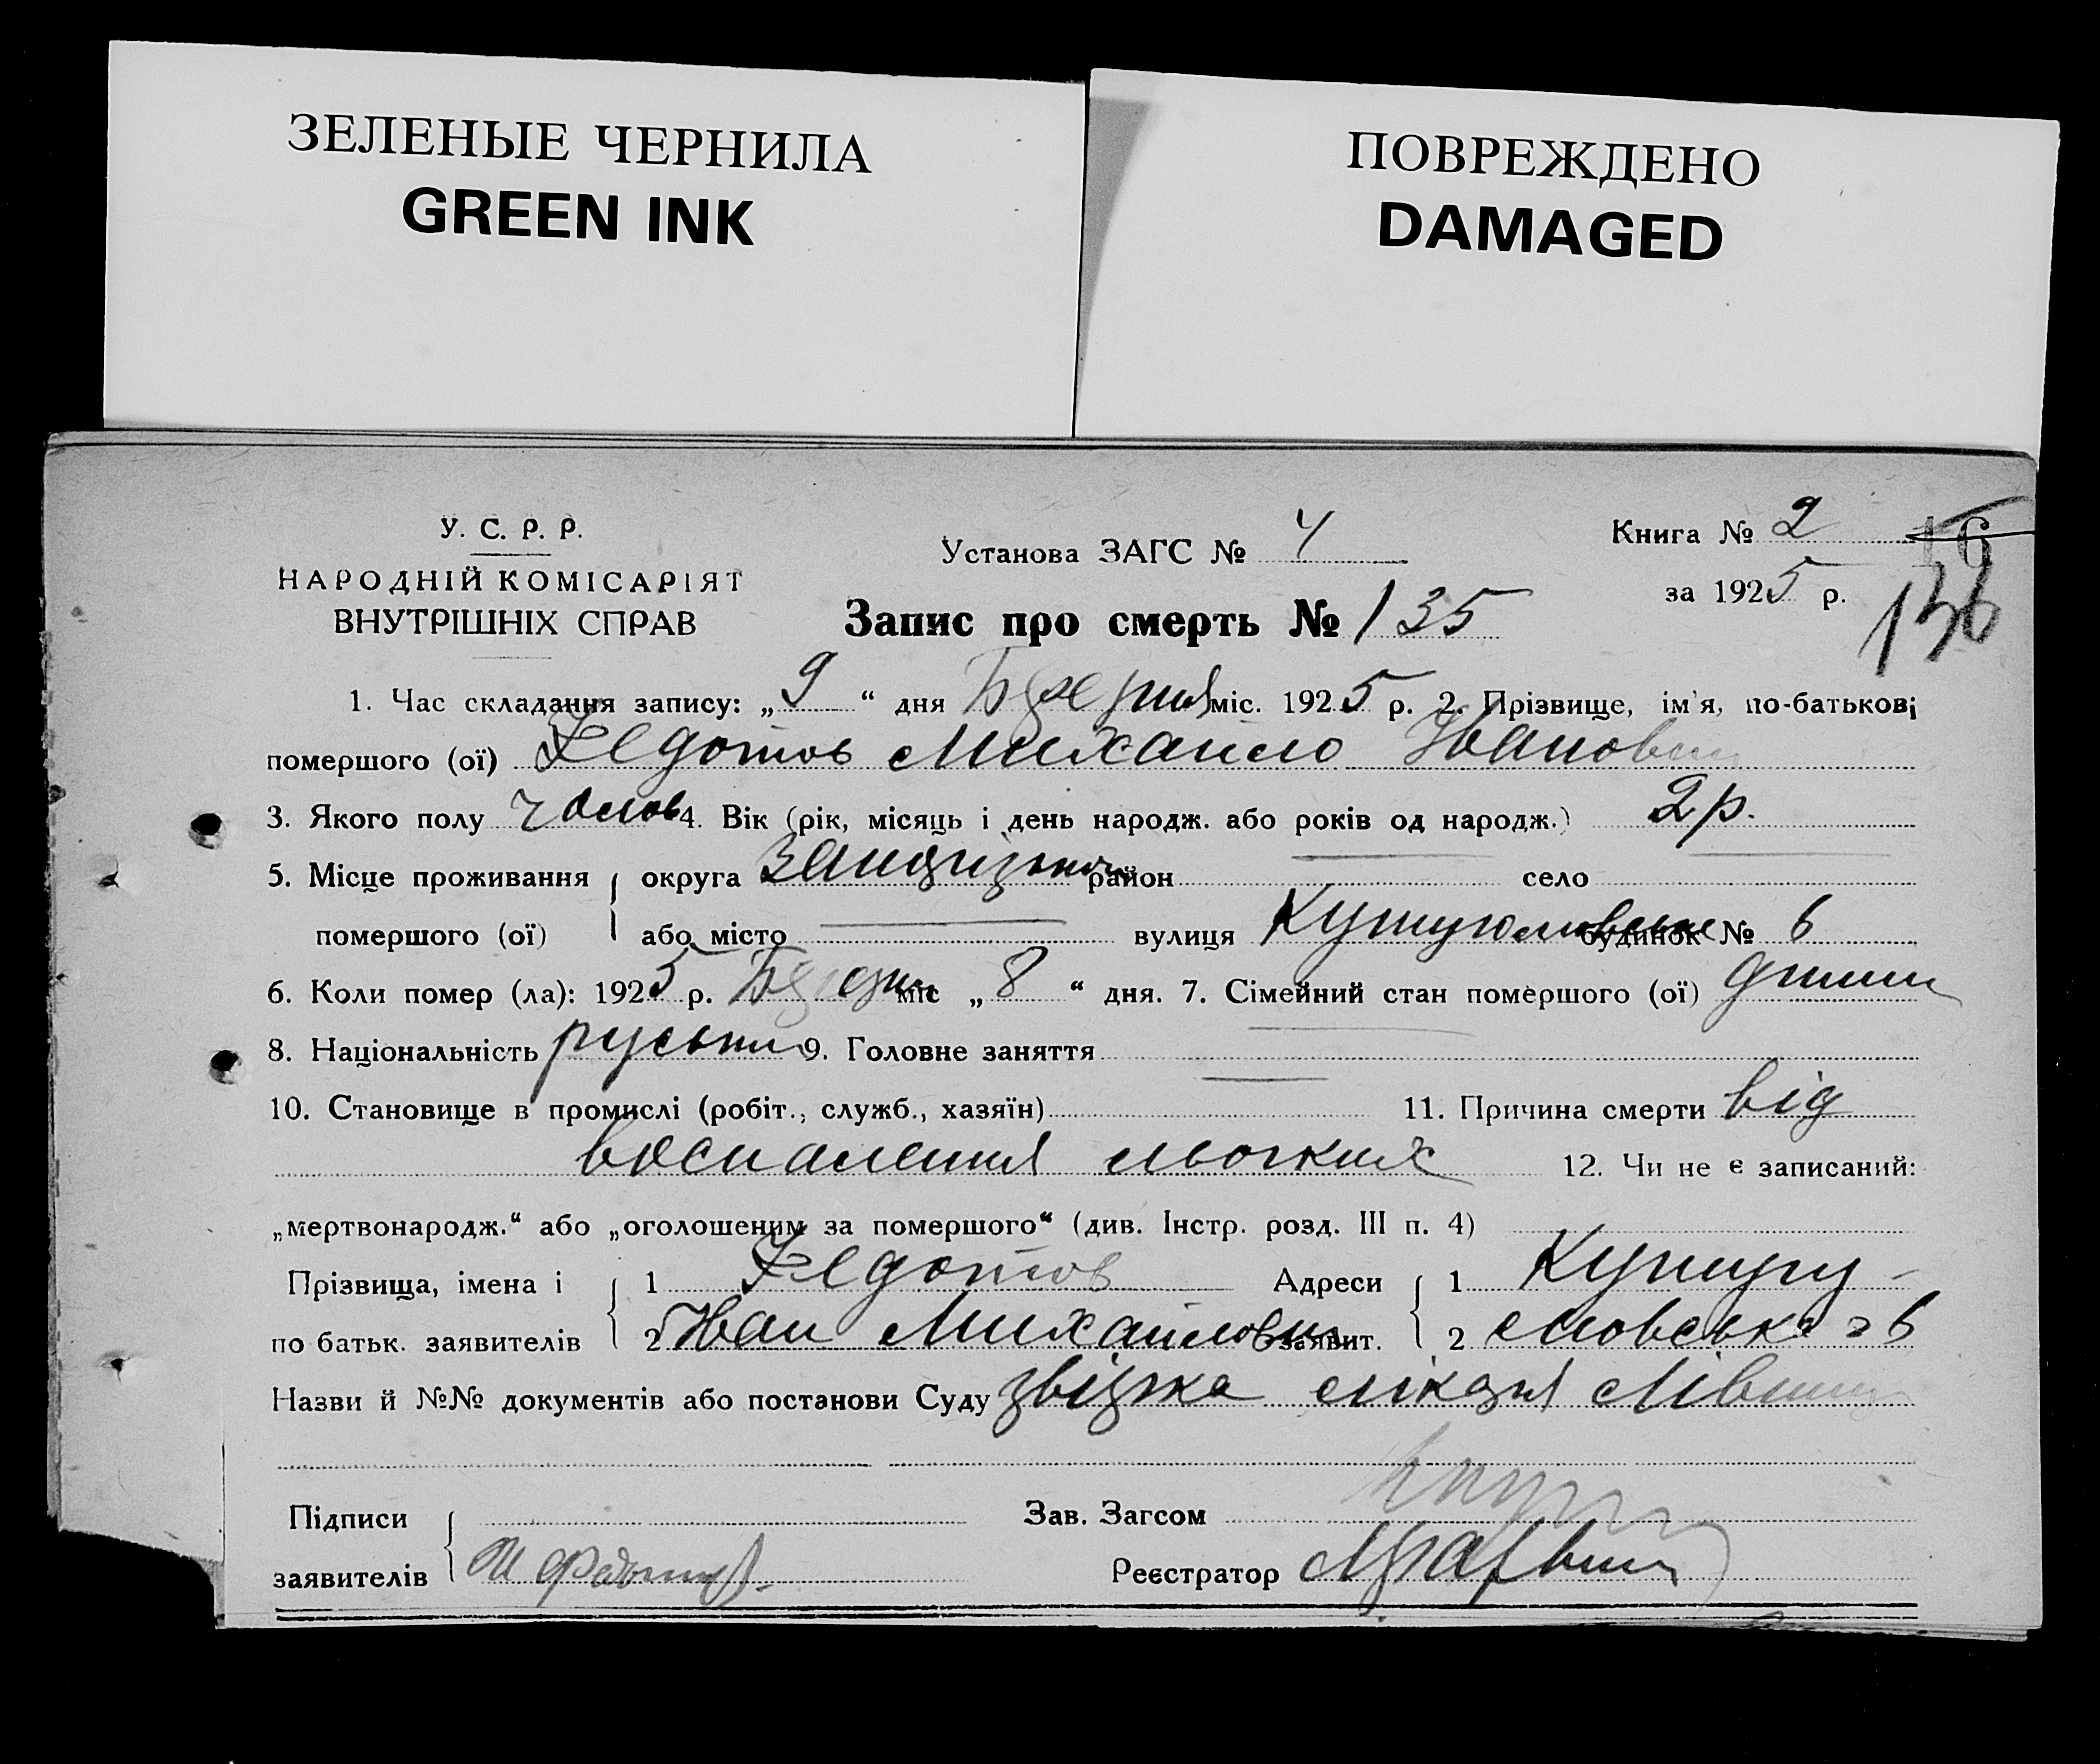 ЗЕЛЕНЫЕ ЧЕРНИЛА
GREEN INK
ПОВРЕЖДЕНО
DAMAGED
У. С. Р. Р.
НАРОДНІЙ КОМІСАРІЯТ
ВНУТРІШНІХ СПРАВ
Установа ЗАГС № 4
Запис про смерть № 135
Книга № 2
16
за 1925 р.
136
1. Час складання запису: „ 9 “ дня міс. 1925 р. 2. Прізвище, ім'я, по-батькові
помершого (ої) Федотов Михайло Іванович
3. Якого полу чолов 4. Вік (рік, місяць і день народж. або років од народж.) 2 р.
5. Місце проживання { округа район село
помершого (ої) або місто вулиця будинок № 6
6. Коли помер (ла): 1925 р. міс „ 8 “ дня. 7. Сімейний стан помершого (ої)
8. Національність руський 9. Головне заняття
10. Становище в промислі (робіт., служб., хазяїн) 11. Причина смерти від
воспаления льогких 12. Чи не є записаний:
„мертвонародж.“ або „оголошеним за помершого“ (див. Інстр. розд. III п. 4)
Прізвища, імена і { 1 Федотов Адреси { 1 Кушугу-
по батьк. заявителів 2 Иван Михайлович заявит. 2 мовська 6
Назви й №№ документів або постанови Суду звідка лікаря
Підписи { Зав. Загсом
заявителів Реєстратор